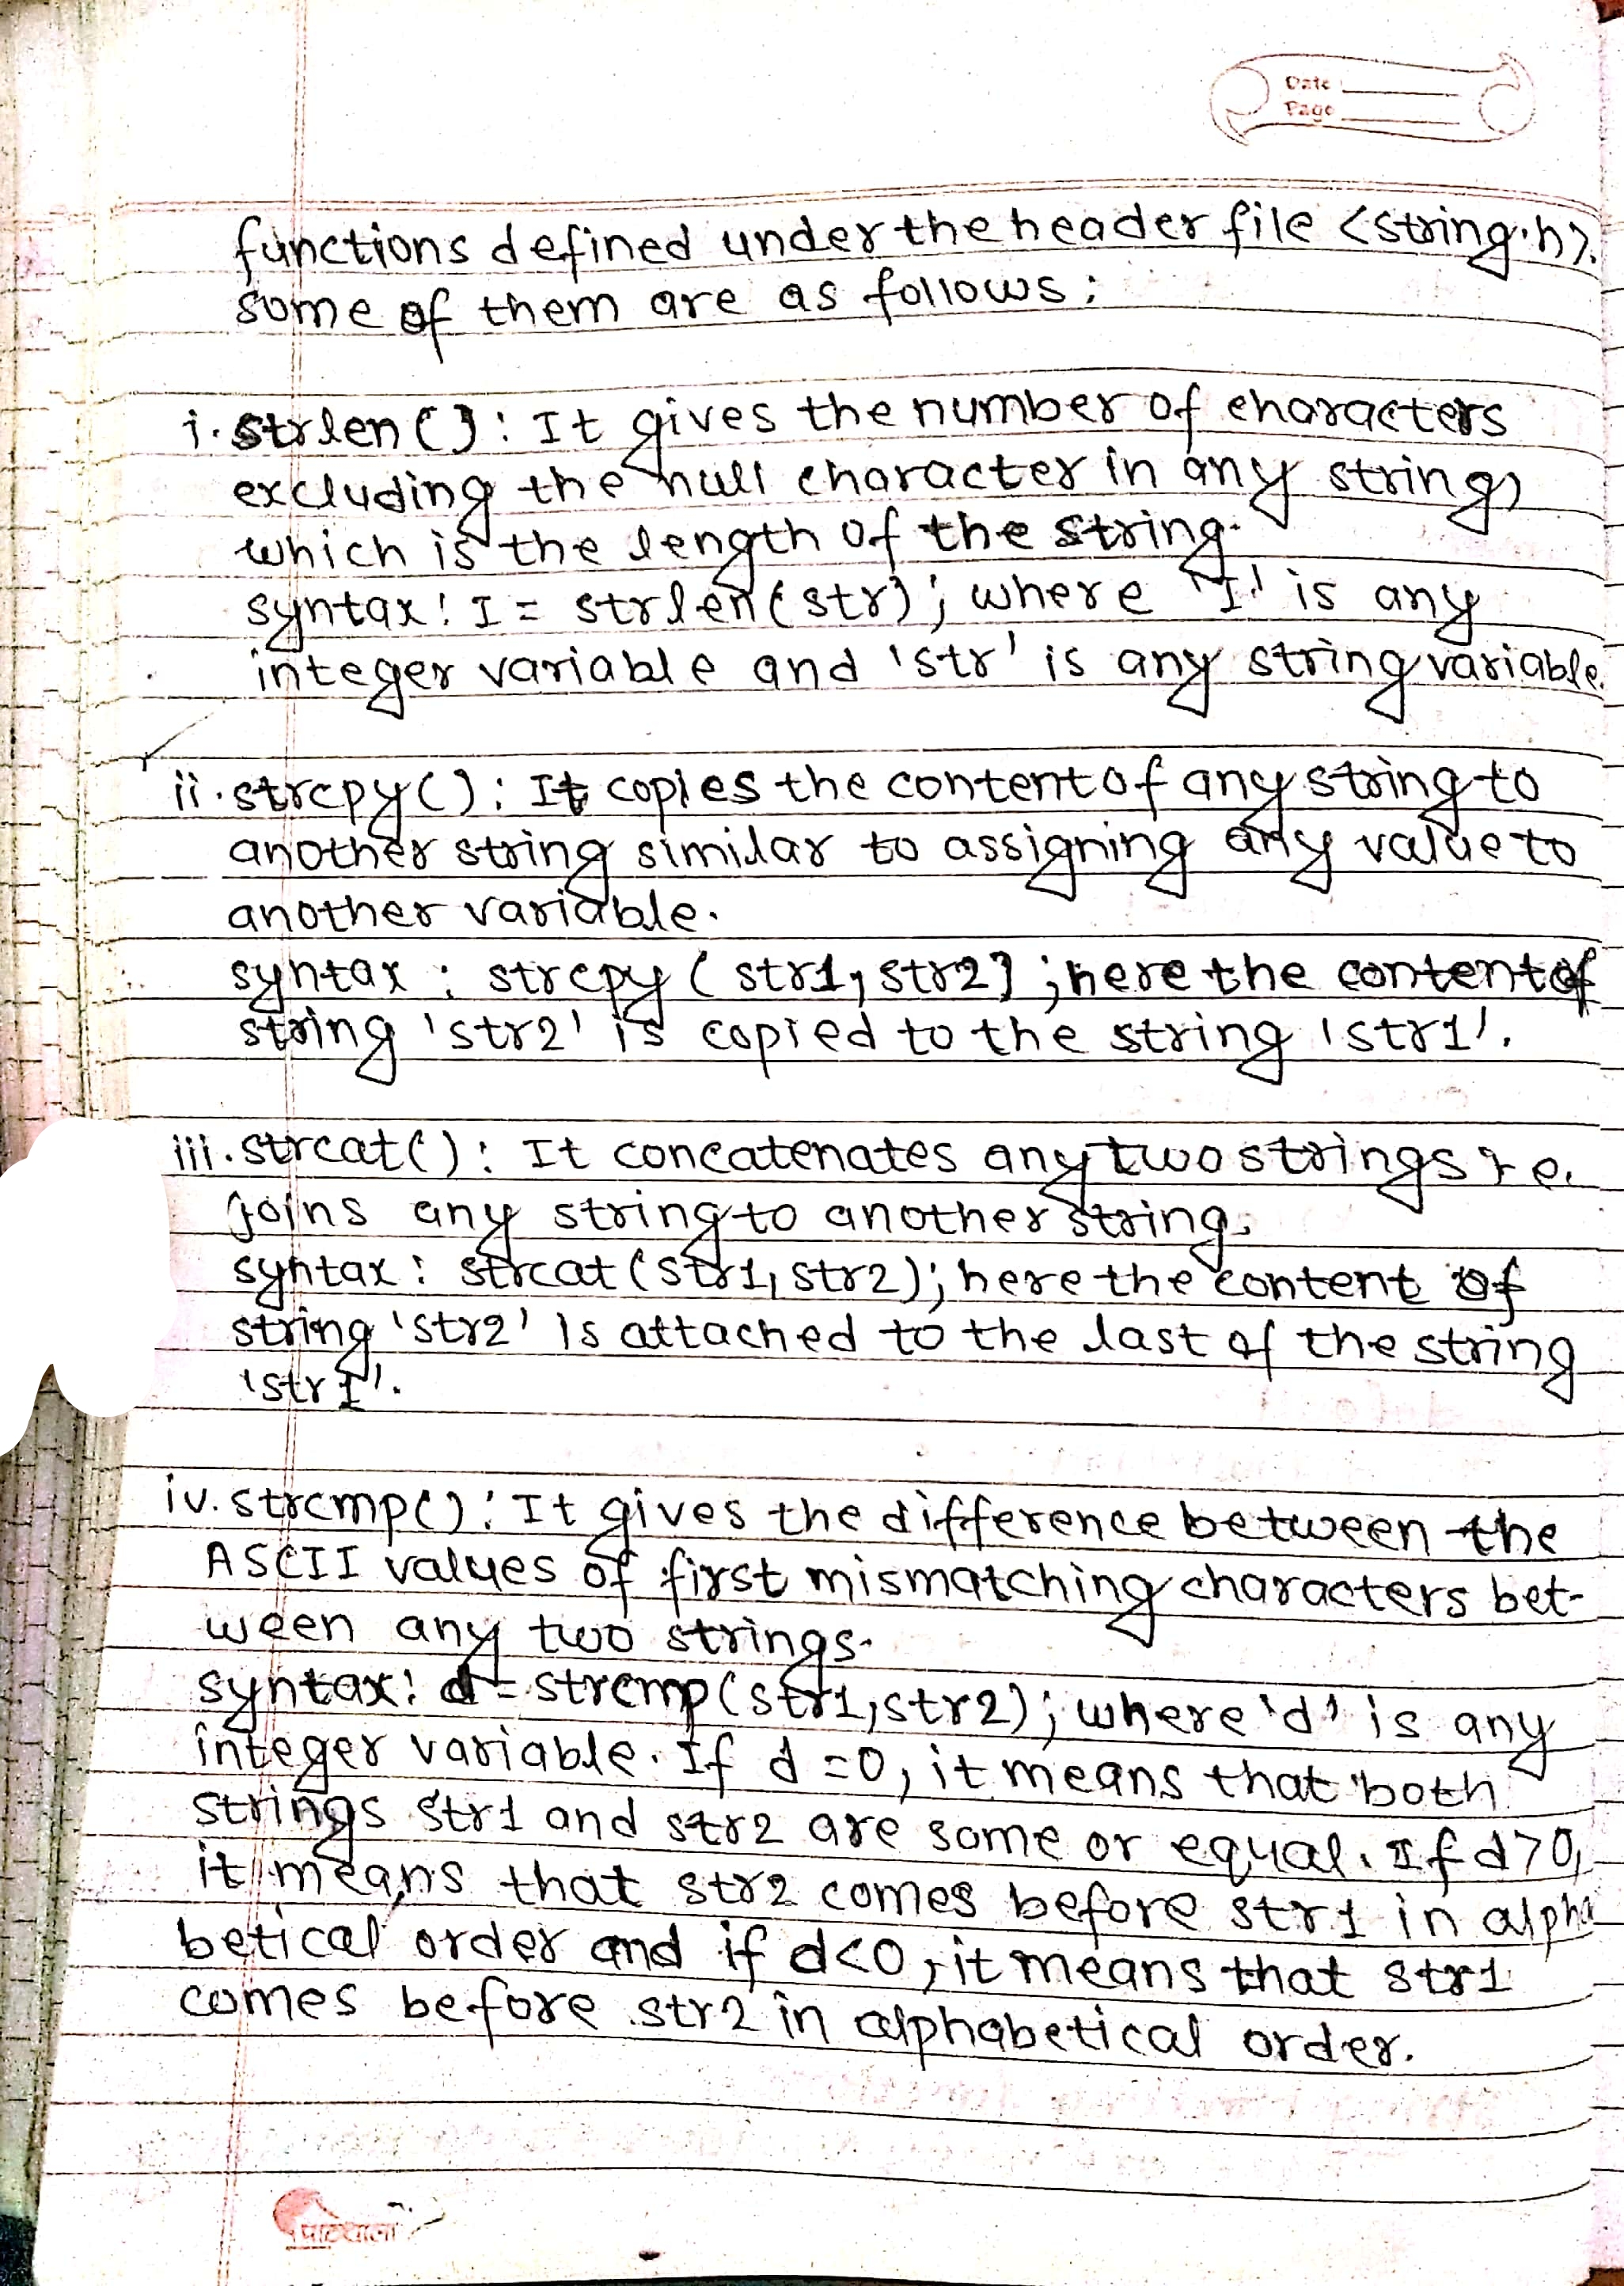 Date
Page
functions defined under the header file <string.h>.
some of them are as follows:
i. strlen(): It gives the number of characters
excluding the null character in any string,
which is the length of the string.
syntax: I = strlen(str); where 'I' is any
integer variable and 'str' is any string variable.
ii. strcpy(): It copies the content of any string to
another string similar to assigning any value to
another variable.
syntax: strcpy(str1, str2); here the content of
string 'str2' is copied to the string 'str1'.
iii. strcat(): It concatenates any two strings i.e.
joins any string to another string.
syntax: strcat(str1, str2); here the content of
string 'str2' is attached to the last of the string
'str1'.
iv. strcmp(): It gives the difference between the
ASCII values of first mismatching characters bet-
ween any two strings.
syntax: d = strcmp(str1, str2); where 'd' is any
integer variable. If d = 0, it means that both
strings str1 and str2 are same or equal. If d > 0,
it means that str2 comes before str1 in alpha
betical order and if d < 0, it means that str1
comes before str2 in alphabetical order.
पाठशाला